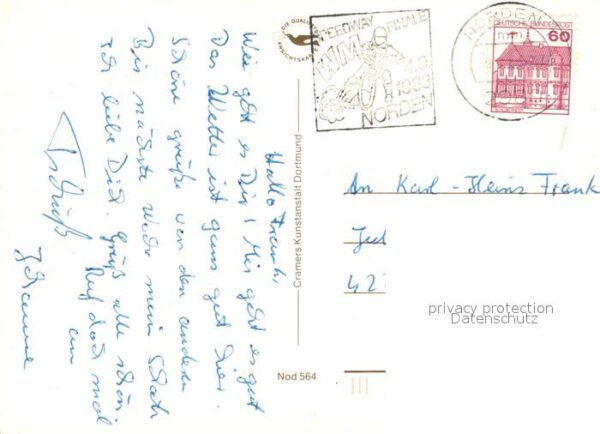 Hallo Frank,
Wie geht es Dir! Mir geht es gut
Das Wetter ist ganz gut hier.
Schöne grüße von den andern
Bis nächste Woche mein Schatz
Ich liebe Dich. Grüß alle schön
Ruf doch mal
an
Tschüß
DIE QUALITÄTS
ANSICHTSKARTE
Cramers Kunstanstalt Dortmund
Nod 564
SPEEDWAY
FINALE
WM
4.9.
1983
NORDEN
NORDEN
DEUTSCHE BUNDESPOST
60
An Karl-Heinz Frank
42
privacy protection
Datenschutz